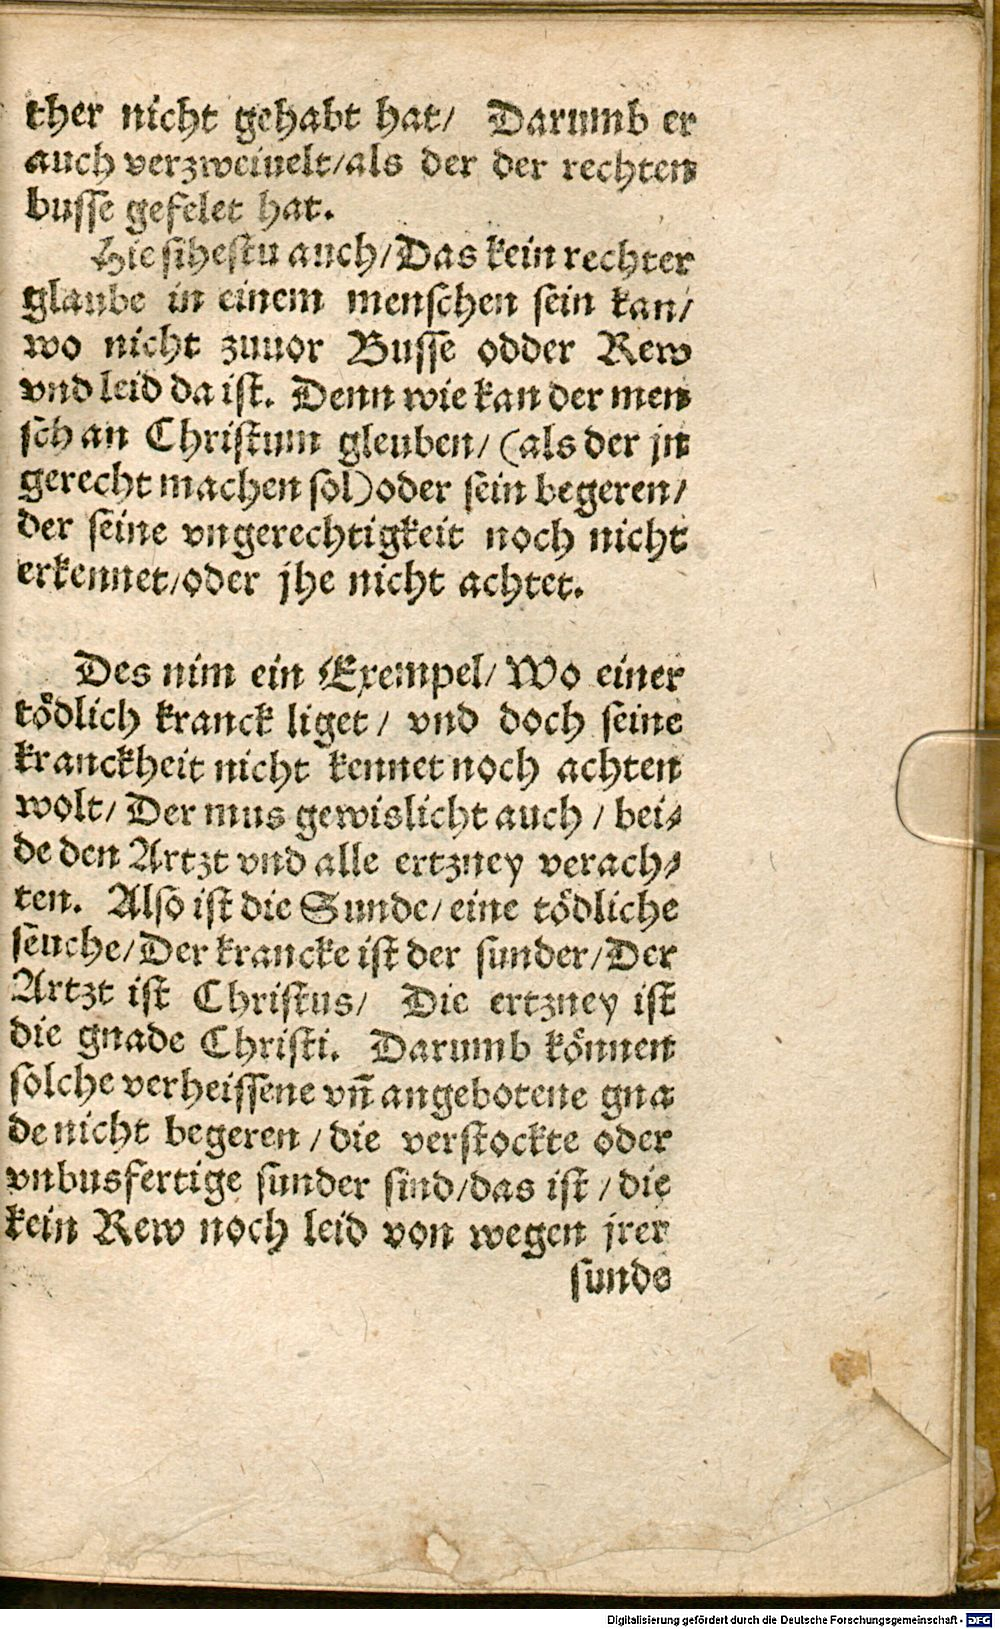 ther nicht gehabt hat/ Darumb er
auch verzweiuelt/als der der rechten
busse gefelet hat.
Hie sihestu auch/Das kein rechter
glaube in einem menschen sein kan/
wo nicht zuuor Busse odder Rew
vnd leid da ist. Denn wie kan der men
sch an Christum gleuben/ (als der jn
gerecht machen sol) oder sein begeren/
der seine vngerechtigkeit noch nicht
erkennet/oder jhe nicht achtet.
Des nim ein Exempel/ Wo einer
tödlich kranck liget / vnd doch seine
kranckheit nicht kennet noch achten
wolt/ Der mus gewislicht auch / bei⸗
de den Artzt vnd alle ertzney verach⸗
ten. Also ist die Sunde/ eine tödliche
seuche/Der krancke ist der sunder/Der
Artzt ist Christus/ Die ertzney ist
die gnade Christi. Darumb können
solche verheissene vn̄ angebotene gna
de nicht begeren / die verstockte oder
vnbusfertige sunder sind/das ist / die
kein Rew noch leid von wegen jrer
sunde
Digitalisierung gefördert durch die Deutsche Forschungsgemeinschaft - DFG